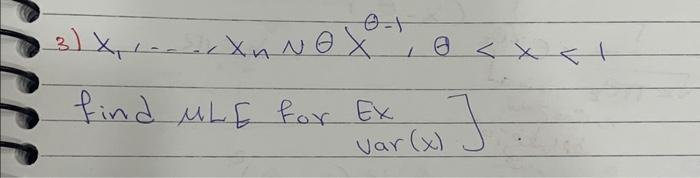 3) X₁, ---, Xn ~ θ X^(θ-1), θ < x < 1
find MLE for Ex
var(x) ] .